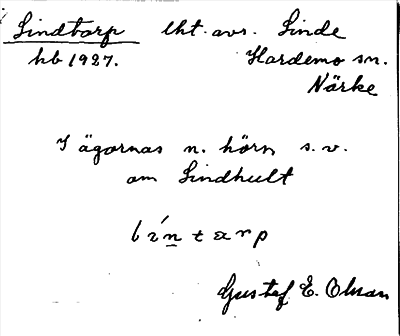 Lindtorp lht. avs. Linde
hb 1927. Hardemo sn.
Närke
I ägornas n. hörn s.v.
om Lindhult
Gustaf E. Olsson